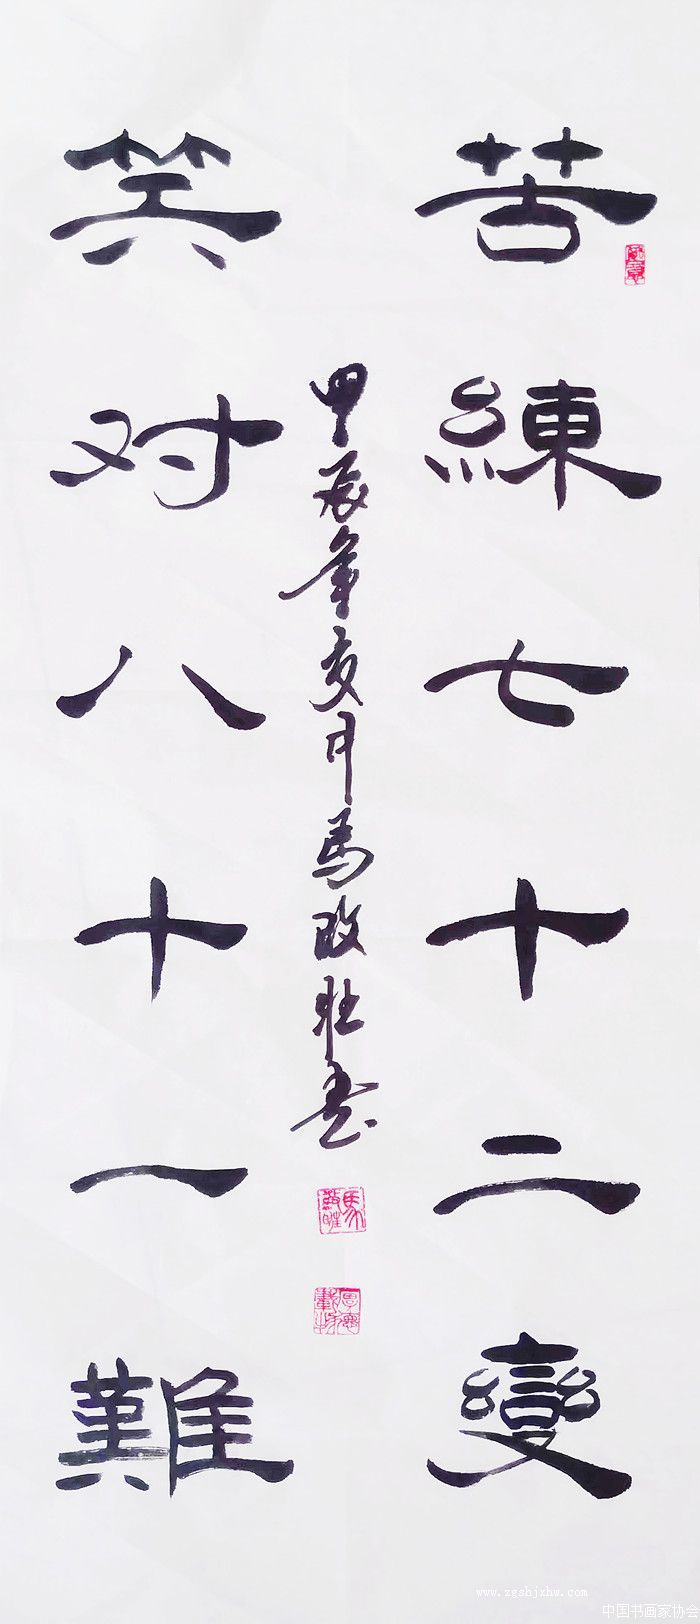 苦練七十二變
笑对八十一難
甲辰年 月 馬 書
厚德載物
www.zgshjxhw.com
中国书画家协会